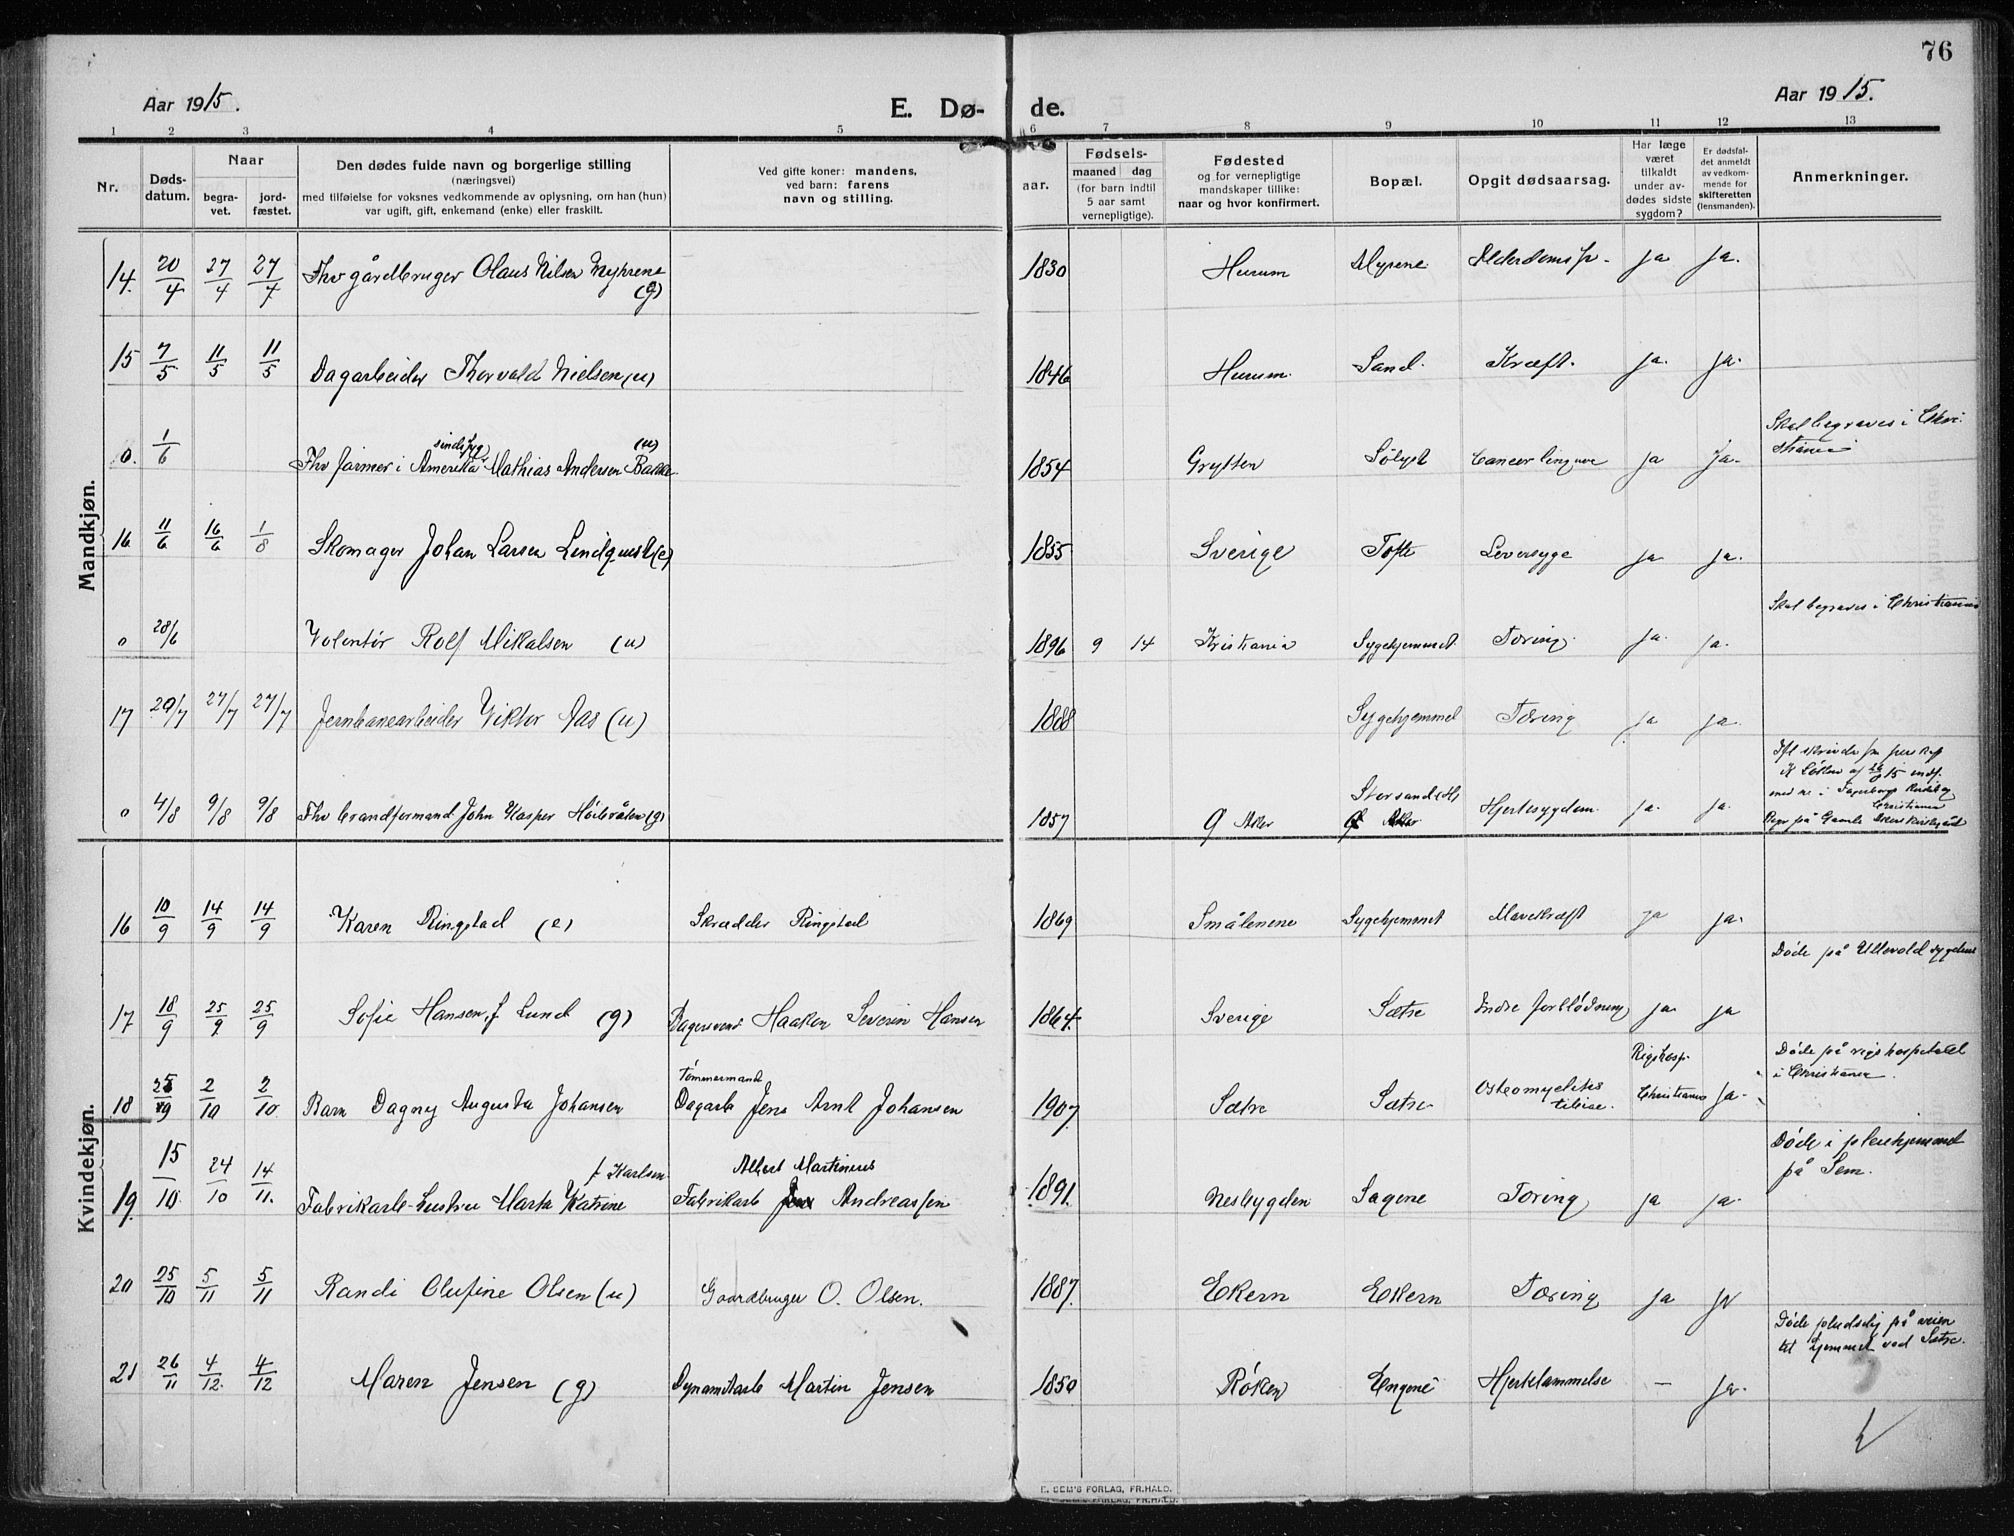 76
Aar 1915.
E. Dø-
de.
Aar 1915.
1 2 3 4 5 6 7 8 9 10 11 12 13
Nr.
Døds-
datum.
Naar
begra-
vet.
jord-
fæstet.
Den dødes fulde navn og borgerlige stilling
(næringsvei)
med tilføielse for voksnes vedkommende av oplysning, om han (hun)
var ugift, gift, enkemand (enke) eller fraskilt.
Ved gifte koner: mandens,
ved barn: farens
navn og stilling.
aar.
Fødsels-
maaned dag
(for barn indtil
5 aar samt
vernepligtige).
Fødested
og for vernepligtige
mandskaper tillike:
naar og hvor konfirmert.
Bopæl.
Opgit dødsaarsag.
Har læge
været
tilkaldt
under av-
dødes sidste
sygdom?
Er dødsfal-
det anmeldt
av vedkom-
mende for
skifteretten
(lensmanden).
Anmerkninger.
Mandkjøn.
14. 20/4 27/4 27/4 Fhv gårdbruger Olaus Nilsen Myhrene (g) 1830 Hurum Myrene Alderdomssv. ja ja.
15 7/5 11/5 11/5 Dagarbeider Thorvald Nielsen (u) 1846 Hurum. Sand. Kræft. ja. ja.
0. 1/6 Fhv farmer i Amerika sindssyg Mathias Andersen Bakke (u) 1854 Grytten Sólyst Cancer linguae ja ja. Skal begraves i Chri-
stiania
16 11/6 16/6 1/8 Skomager Johan Larsen Lindquist (e) 1855 Sverige Tofte Leversyge ja ja.
0 28/6 Volontør Rolf Mikalsen (u) 1896 9 14 Kristiania Sygehjemmet Tæring. ja. ja. Skal begraves i Christiania
17 20/7 27/7 27/7 Jernbanearbeider Viktor Aas (u) 1888 Sygehjemmet Tæring ja ja
0 4/8 9/8 9/8 Fhv brandformand John Kasper Höibråten (g) 1857 g Aker Storsand (H) Hjertesygdom. ja. ja.
Christiania
på Gamle Akers kirkegård
Kvindekjøn.
16 10/9 14/9 14/9 Karen Ringstad (e) Skrædder Ringstad 1869 Smålenene Sygehjemmet Mavekræft ja ja.
17 18/9 25/9 25/9 Sofie Hansen, f Lund (g) Haakon Severin Hansen 1864. Sverige Sætre Indre forblødning ja ja Døde på Ullevold sygehus
18 25/9 2/10 2/10. Barn Dagny Augusta Johansen tömmermand Dagarb Jens Arnt Johansen 1907 Sætre Sætre Osteomyelitis tibiae. Rigshosp. Christiania ja. Døde på rigshospitalet
i Christiania.
19. 15/10. 24/10 14/11. Fabrikarb-hustru Marta Katrine f Karlsen Fabrikarb Albert Martinius Andreassen 1891. Nesbygden Sagene Tæring ja ja. Døde i pleiehjemmet
på Sem.
20 25/10 5/11 5/11 Randi Olufine Olsen (u) Gaardbruger O. Olsen. 1887. Ekern Ekern Tæring ja ja
21 26/11 4/12. 4/12 Maren Jensen (g) Dynamitarb Martin Jensen 1850 Røken Engene Hjertelammelse — ja. Døde pludselig på veien
til hjemmet ved Sætre.
E. SEM'S FORLAG, FR.HALD.